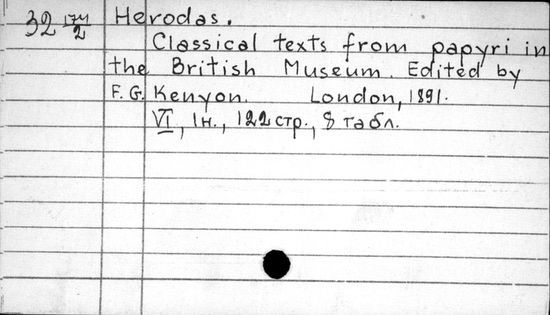 32 174/2
Herodas.
Classical texts from papyri in
the British Museum. Edited by
F. G. Kenyon. London, 1891.
VI, 1н., 122 стр., 8 табл.